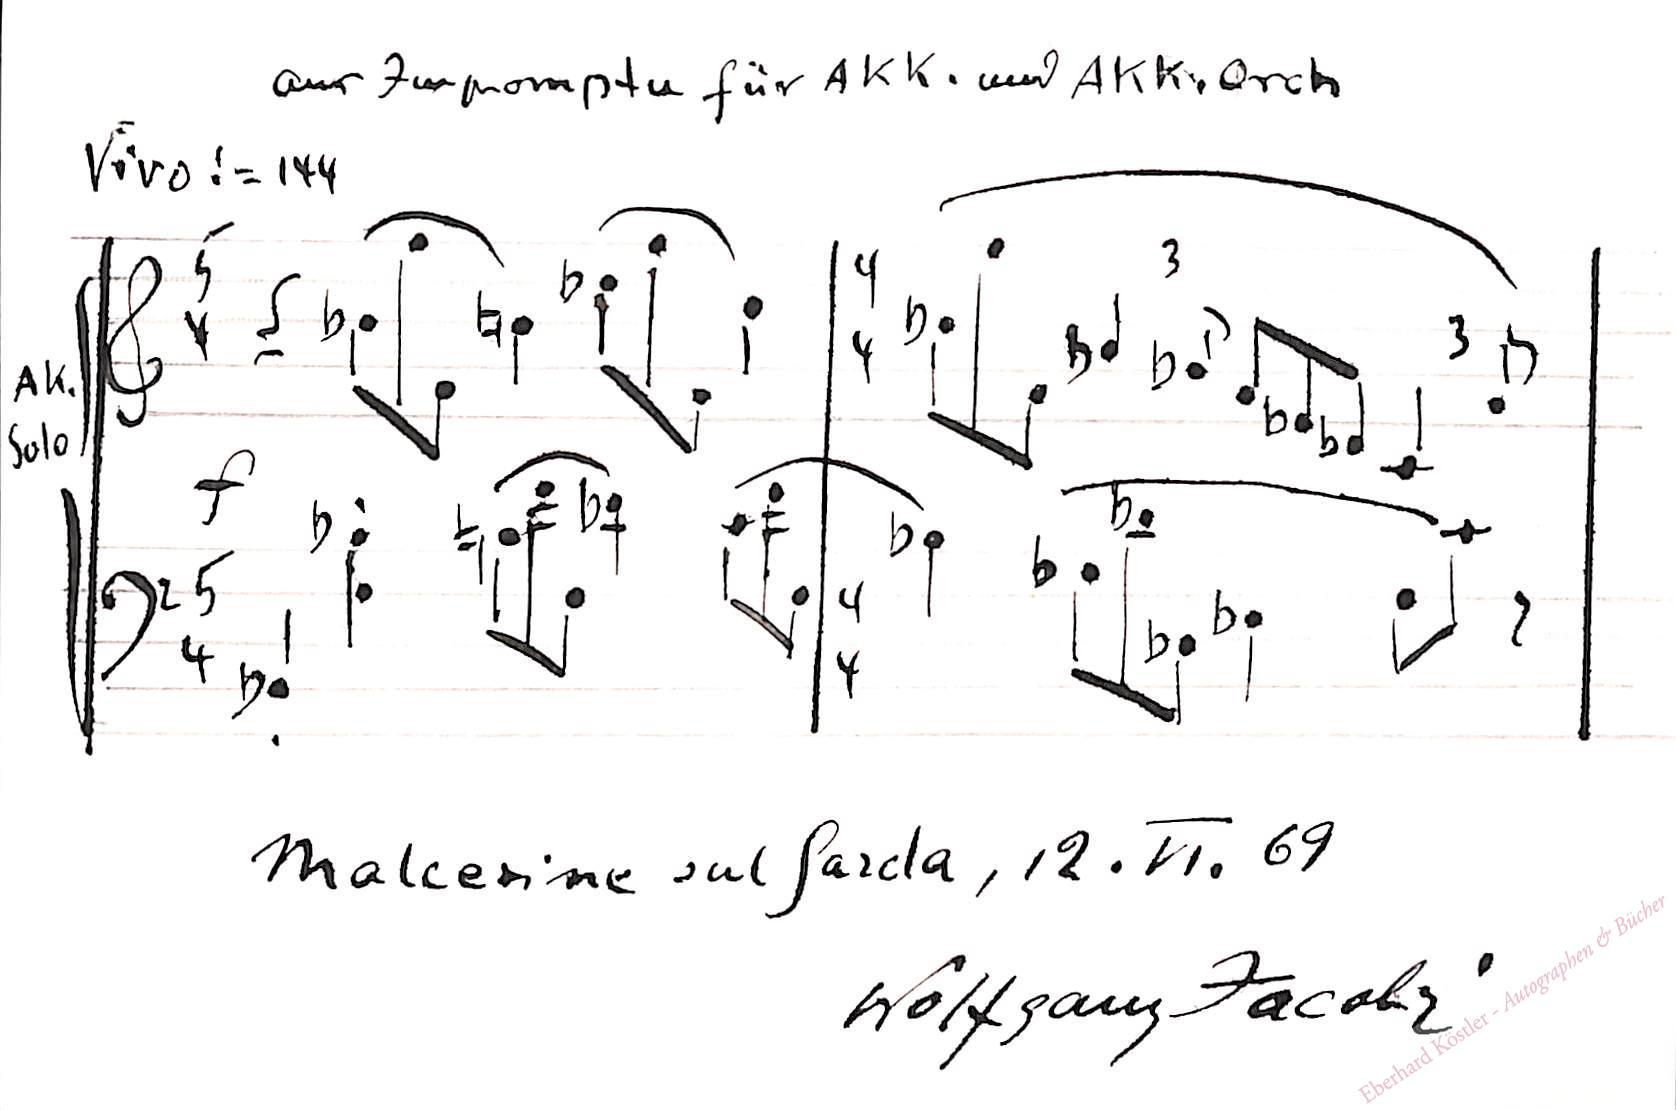 aus Impromptu für AKK. und AKK. Orch
Vivo ♩= 144
5
4
4
4
3
3
AK.
Solo
f
5
4
4
4
Malcesine sul Garda, 12. VI. 69
Wolfgang Jacobi
Eberhard Köstler - Autographen & Bücher